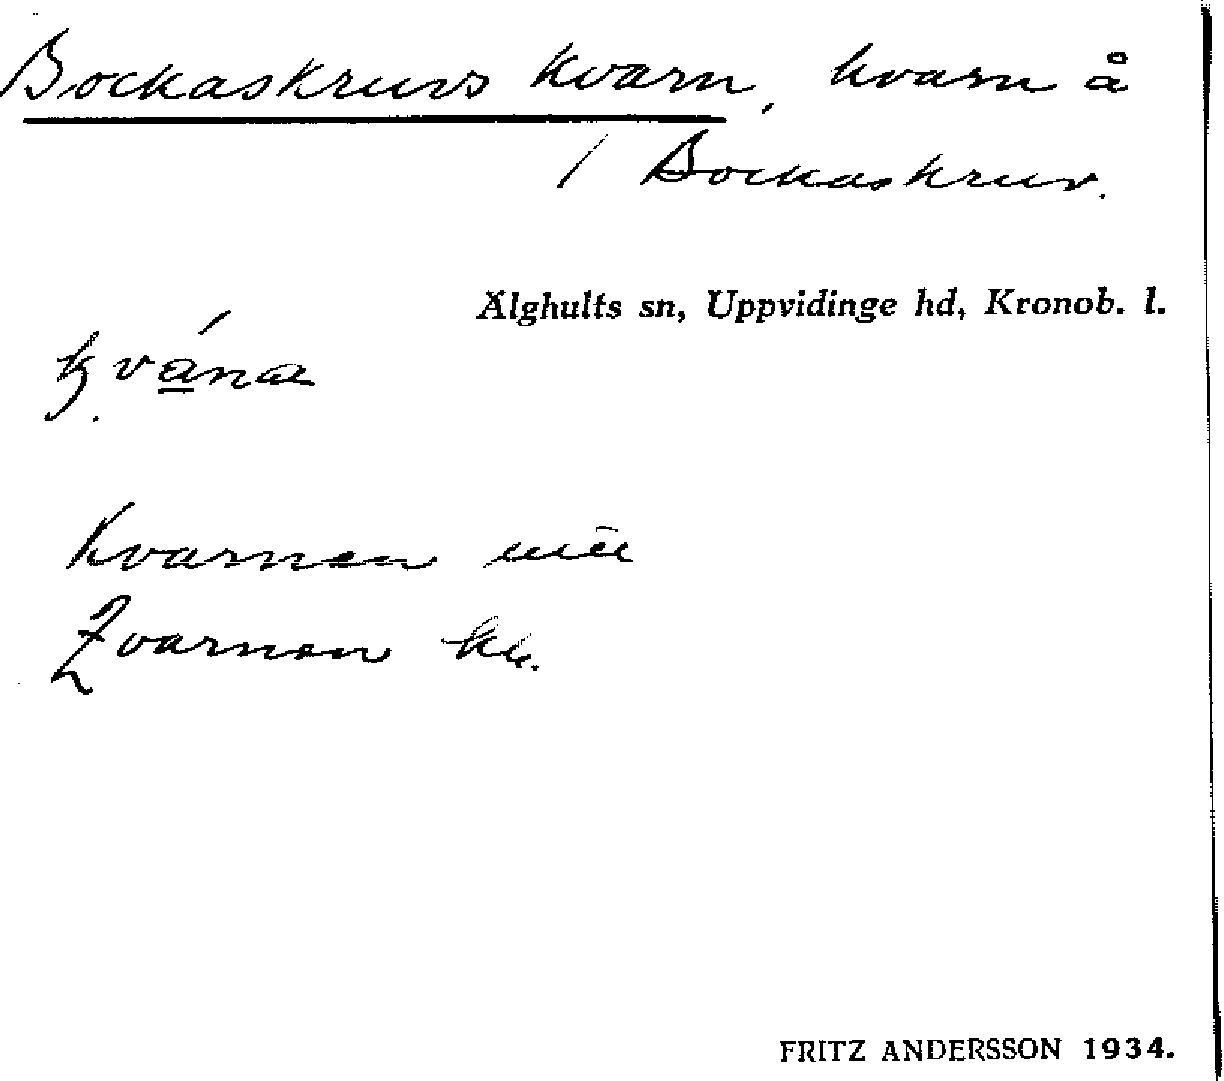 Bockaskruvs kvarn, kvarn å
/ Bockaskruv.
Älghults sn, Uppvidinge hd, Kronob. l.
kvána
Kvarnen
Kvarnen
FRITZ ANDERSSON 1934.